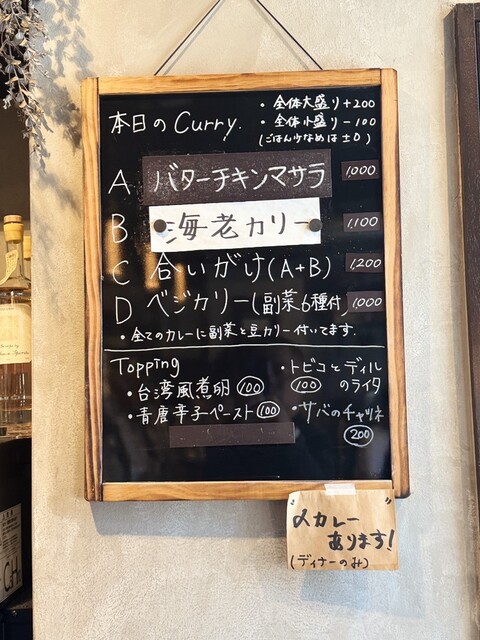 本日のCurry.
・全体大盛り+200
・全体小盛り-100
(ごはん少なめは±0)
A バターチキンマサラ 1,000
B 海老カリー 1,100
C 合いがけ(A+B) 1,200
D ベジカリー(副菜6種付) 1,000
・全てのカレーに副菜と豆カリー付いてます.
Topping
・台湾風煮卵 100
・青唐辛子ペースト 100
・トビコとディル
のライタ 100
・サバのチャツネ
200
〆カレー
あります!
(ディナーのみ)